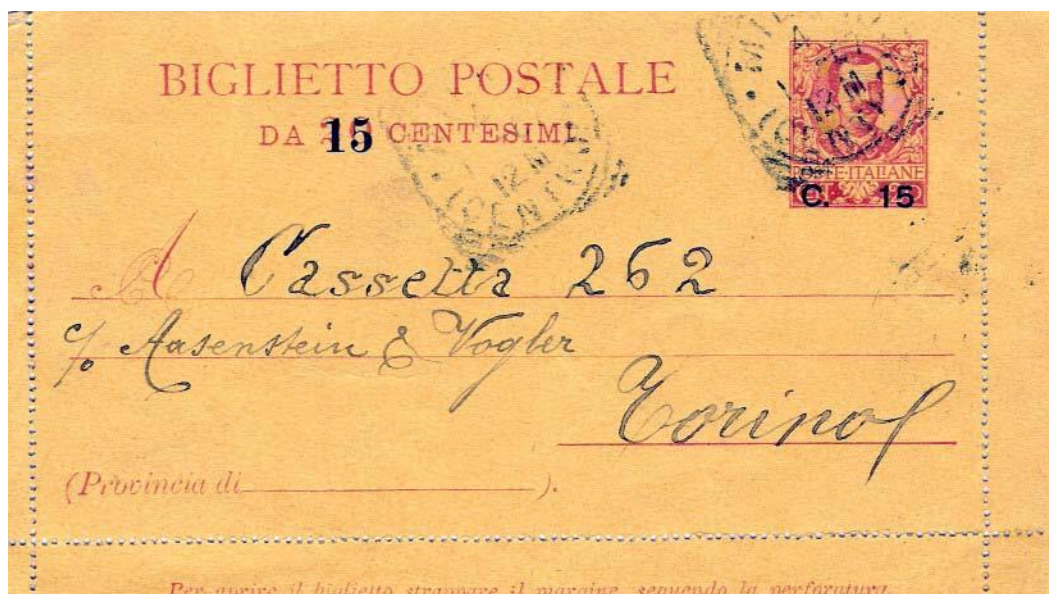 BIGLIETTO POSTALE
DA 15 CENTESIMI
MILANO
12 M
(CENTRO)
12 M
(CENTR
POSTE·ITALIANE
C. 15
A Cassetta 262
c/o Aasenstein & Vogler
Torino
(Provincia di ).
Per aprire il biglietto strappare il margine, seguendo la perforatura.